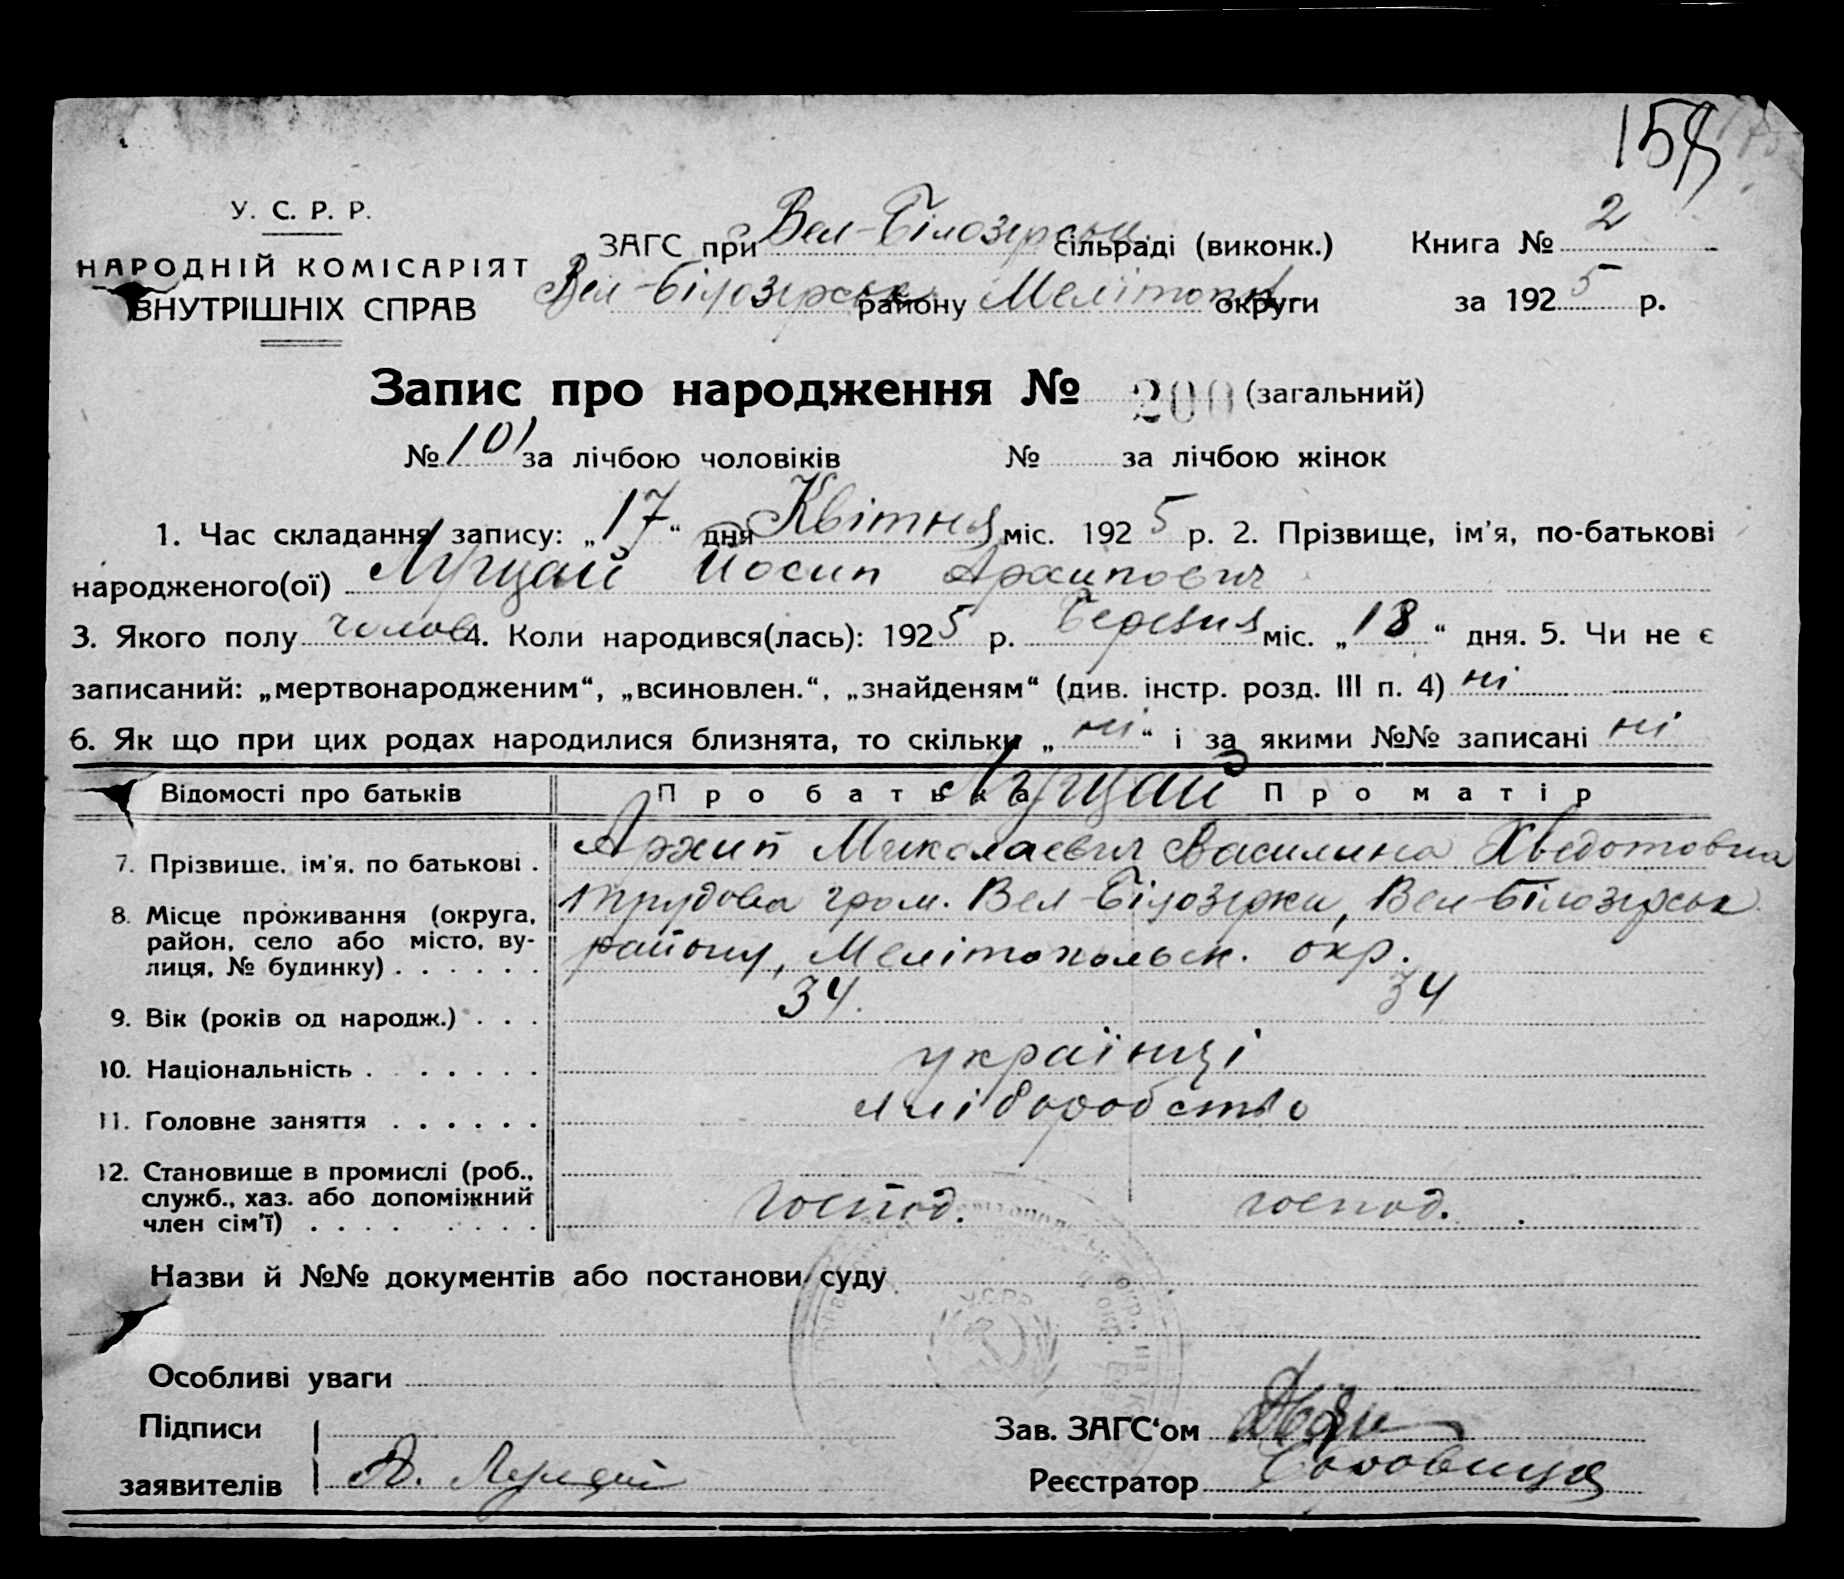 У. С. Р. Р.
НАРОДНІЙ КОМІСАРІЯТ
ВНУТРІШНІХ СПРАВ
ЗАГС при Вел-Білозірськ. сільраді (виконк.)
Вел-Білозірськ району Мелітоп. округи
Книга № 2
за 1925 р.
Запис про народження № 200 (загальний)
№ 101 за лічбою чоловіків № за лічбою жінок
1. Час складання запису: „17“ дня Квітня міс. 1925 р. 2. Прізвище, ім'я, по-батькові
народженого(ої) Луцай Йосип Архипович
3. Якого полу чолов 4. Коли народився(лась): 1925 р. Березня міс. „18“ дня. 5. Чи не є
записаний: „мертвонародженим“, „всиновлен.“, „знайденям“ (див. інстр. розд. III п. 4) ні
6. Як що при цих родах народилися близнята, то скільки „ні“ і за якими №№ записані ні
Відомості про батьків Про батька Луцай Про матір
7. Прізвище, ім'я, по батькові . Архип Миколаевич Василина Хведотовна
8. Місце проживання (округа, трудова гром. Вел-Білозірка, Вел-Білозірськ
район, село або місто, ву-
лиця, № будинку) . . . . . . району, Мелітопольськ. окр.
9. Вік (років од народж.) . . . 34. 34
10. Національність . . . . . . . українці
11. Головне заняття . . . . . . хліборобство
12. Становище в промислі (роб.,
служб., хаз. або допоміжний
член сім'ї) . . . . . . . . господ. господ.
Назви й №№ документів або постанови суду
У.С.Р.Р.
Особливі уваги
Підписи
заявителів А. Луцай
Зав. ЗАГС‘ом
Реєстратор